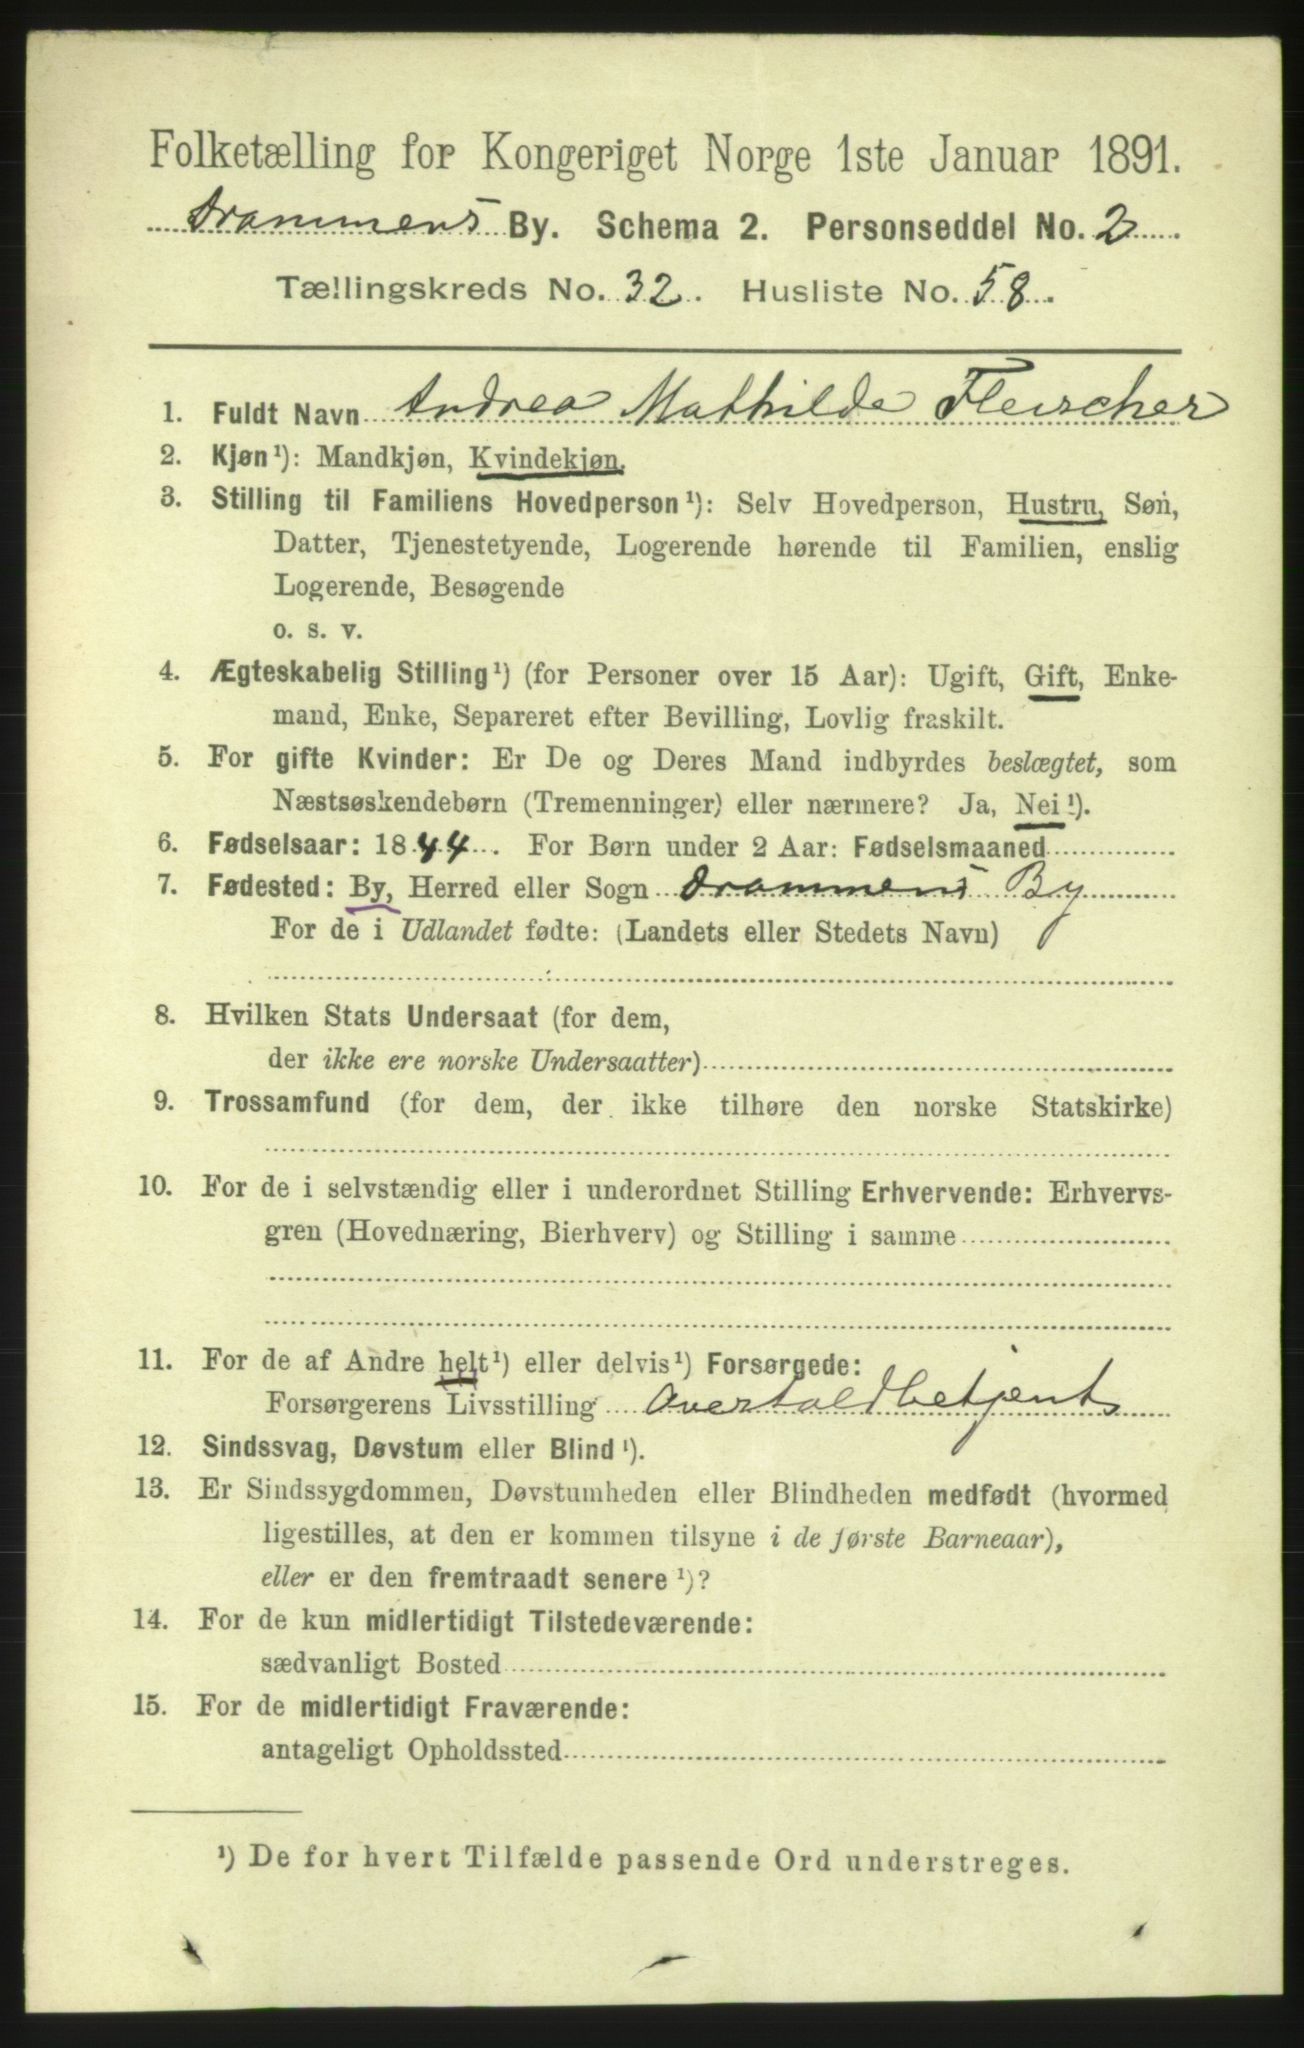 Folketælling for Kongeriget Norge 1ste Januar 1891.
Drammens By. Schema 2. Personseddel No. 2
Tællingskreds No. 32. Husliste No. 58.
1. Fuldt Navn Andrea Mathilde Fleischer
2. Kjøn¹): Mandkjøn, Kvindekjøn.
3. Stilling til Familiens Hovedperson¹): Selv Hovedperson, Hustru, Søn,
Datter, Tjenestetyende, Logerende hørende til Familien, enslig
Logerende, Besøgende
o. s. v.
4. Ægteskabelig Stilling¹) (for Personer over 15 Aar): Ugift, Gift, Enke-
mand, Enke, Separeret efter Bevilling, Lovlig fraskilt.
5. For gifte Kvinder: Er De og Deres Mand indbyrdes beslægtet, som
Næstsøskendebørn (Tremenninger) eller nærmere? Ja, Nei¹).
6. Fødselsaar: 1844. For Børn under 2 Aar: Fødselsmaaned
7. Fødested: By, Herred eller Sogn Drammens By
For de i Udlandet fødte: (Landets eller Stedets Navn)
8. Hvilken Stats Undersaat (for dem,
der ikke ere norske Undersaatter)
9. Trossamfund (for dem, der ikke tilhøre den norske Statskirke)
10. For de i selvstændig eller i underordnet Stilling Erhvervende: Erhvervs-
gren (Hovednæring, Bierhverv) og Stilling i samme
11. For de af Andre helt¹) eller delvis¹) Forsørgede:
Forsørgerens Livsstilling Overtoldbetjent
12. Sindssvag, Døvstum eller Blind¹).
13. Er Sindssygdommen, Døvstumheden eller Blindheden medfødt (hvormed
ligestilles, at den er kommen tilsyne i de første Barneaar),
eller er den fremtraadt senere¹)?
14. For de kun midlertidigt Tilstedeværende:
sædvanligt Bosted
15. For de midlertidigt Fraværende:
antageligt Opholdssted
¹) De for hvert Tilfælde passende Ord understreges.